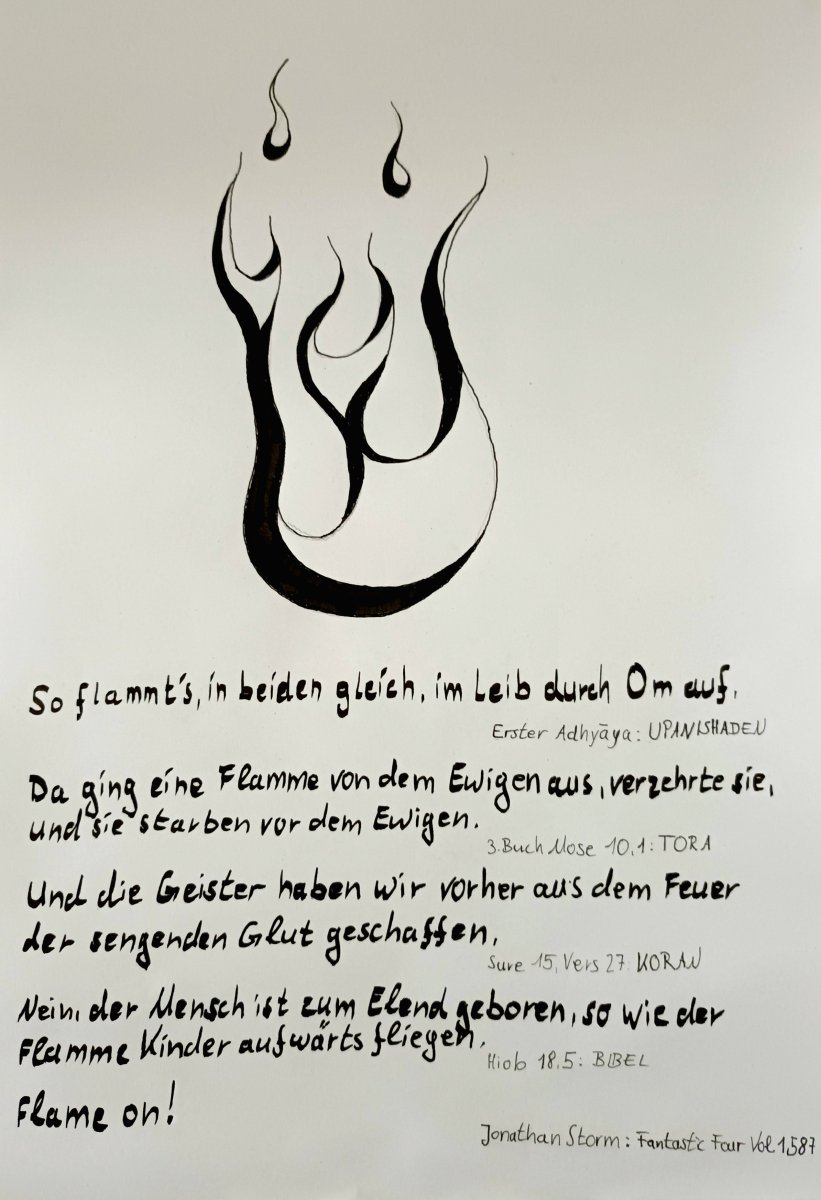 So flammt's, in beiden gleich, im Leib durch Om auf.
Erster Adhyāya: UPANISHADEN
Da ging eine Flamme von dem Ewigen aus, verzehrte sie,
und sie starben vor dem Ewigen.
3. Buch Mose 10,1: TORA
Und die Geister haben wir vorher aus dem Feuer
der sengenden Glut geschaffen,
Sure 15, Vers 27 KORAN
Nein, der Mensch ist zum Elend geboren, so wie der
Flamme Kinder aufwärts fliegen.
Hiob 18,5: BIBEL
Flame on!
Jonathan Storm: Fantastic Four Vol 1,587